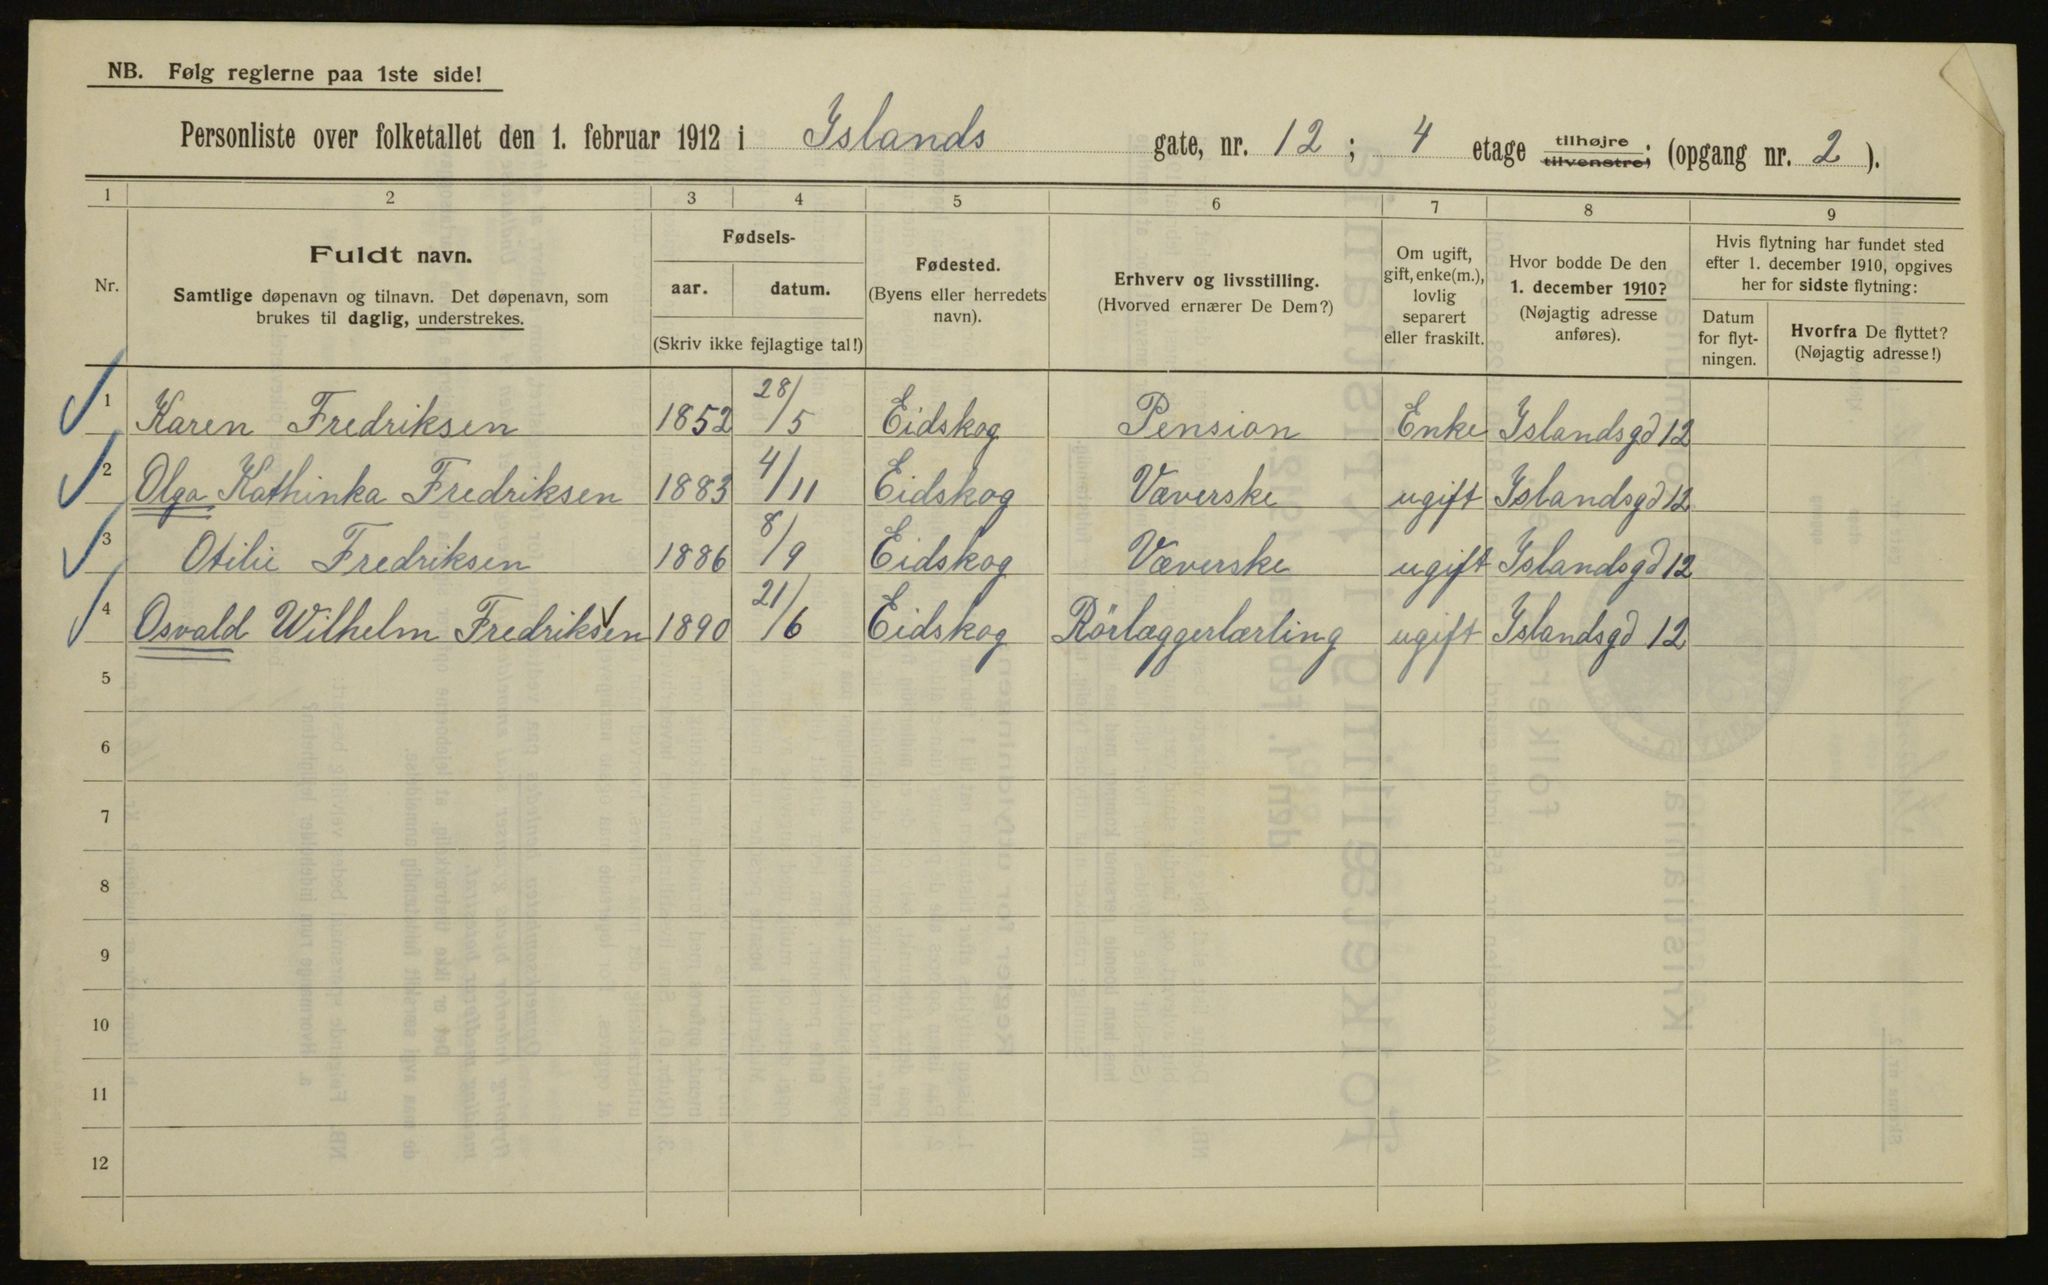 NB. Følg reglerne paa 1ste side!
Personliste over folketallet den 1. februar 1912 i Islands gate, nr. 12 ; 4 etage tilhøjre tilvenstre; (opgang nr. 2 ).
1 2 3 4 5 6 7 8 9
Nr.
Fuldt navn.
Samtlige døpenavn og tilnavn. Det døpenavn, som
brukes til daglig, understrekes.
Fødsels-
aar. datum.
(Skriv ikke fejlagtige tal!)
Fødested.
(Byens eller herredets
navn).
Erhverv og livsstilling.
(Hvorved ernærer De Dem?)
Om ugift,
gift, enke(m.),
lovlig
separert
eller fraskilt.
Hvor bodde De den
1. december 1910?
(Nøjagtig adresse
anføres).
Hvis flytning har fundet sted
efter 1. december 1910, opgives
her for sidste flytning:
Datum
for flyt-
ningen.
Hvorfra De flyttet?
(Nøjagtig adresse!)
1 Karen Fredriksen 1852 28/5 Eidskog Pension Enke Islandsgd 12
2 Olga Kathinka Fredriksen 1883 4/11 Eidskog Væverske ugift Islandsgd 12
3 Otilie Fredriksen 1886 8/9 Eidskog Væverske ugift Islandsgd 12
4 Osvald Wilhelm Fredriksen 1890 21/6 Eidskog Rörlæggerlærling ugift Islandsgd 12
5
6
7
8
9
10
11
12